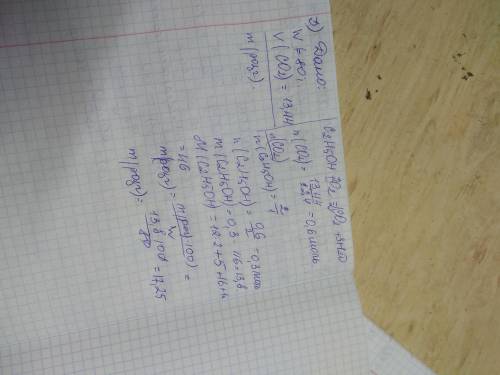 3) Дано:
W = 80%
V(CO2) = 13,44
m(раз2).
C2H5OH + 3O2 = 2CO2 + 3H2O
n(CO2) = 13,44 / 22,4 = 0,6 моль
n(CO2) / n(C2H5OH) = 2/1
n(C2H5OH) = 0,6 / 2 = 0,3 моль
m(C2H5OH) = 0,3 · 46 = 13,8
M(C2H5OH) = 12·2+5+16+1
= 46
mраз2) = m(рас)100) / W =
m(раз2) = 13,8·100 / 80 = 17,25